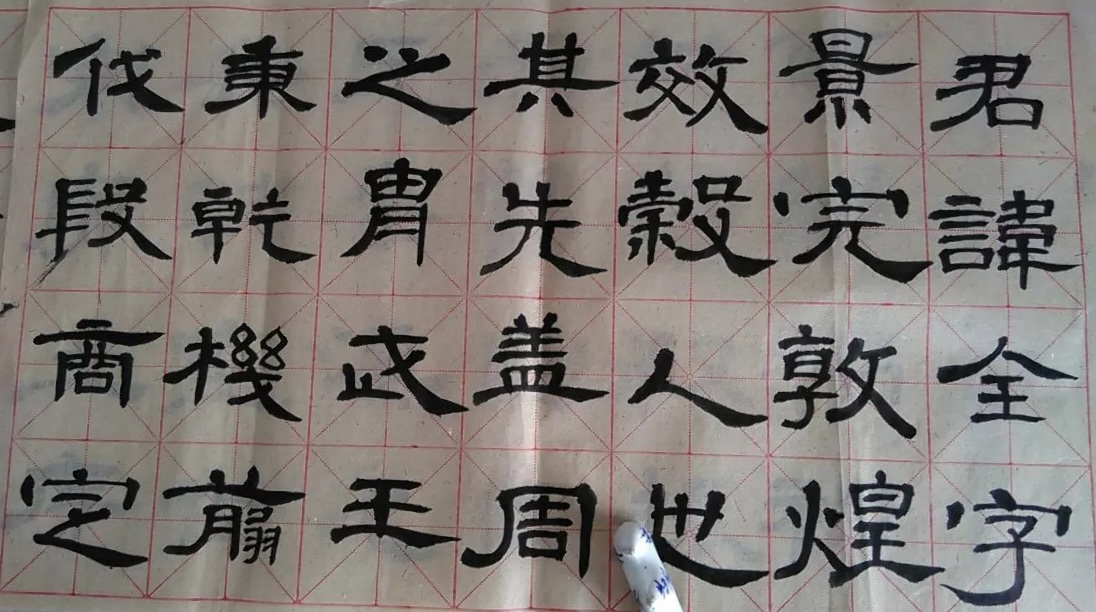 君諱全字
景完敦煌
效穀人也
其先盖周
之胄武王
秉乾機翦
伐殷商定